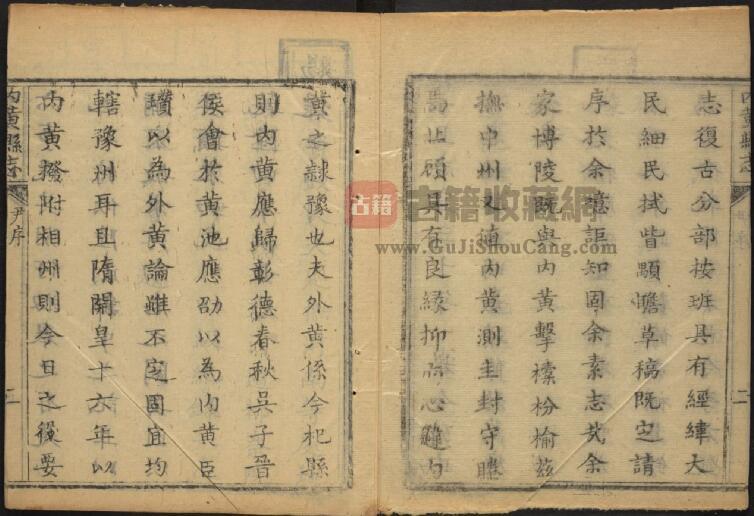 志復古分部按班具有經緯大
民細民拭眥顒噡草稿既定請
序於余噫謳知固余素志哉余
家博陵既與内黄擊榛枌榆兹
撫中州又補内黄測圭封守睠
焉此碩具有良緣抑亦心
黄之隷豫也夫外黄係今杞縣
則内黄應歸彰德春秋吳子晉
侯會於黄池應劭以為内黄臣
瓚以為外黄論雖不定固宜均
轄豫州耳且隋開皇十六年以
内黄撥附相州則今日之後要
内黄縣志
尹序
二
古籍
古籍收藏網
www.GuJiShouCang.com